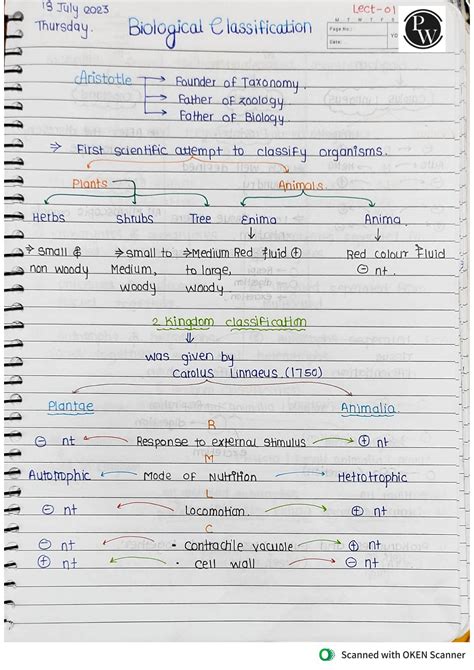 13 July 2023
Thursday.
Biological Classification
Lect-01
M T W T F S S
Page No.:
Date:
YO
PW
Aristotle → Founder of Taxonomy.
→ Father of zoology.
→ Father of Biology.
⇒ First scientific attempt to classify organisms.
Plants Animals.
Herbs Shrubs Tree Enima Anima.
⇒ Small & ⇒ Small to ⇒ Medium Red Fluid ⊕ Red colour Fluid
non woody Medium, to large, ⊖ nt.
woody woody.
2 Kingdom classification
⇓
was given by
Carolus Linnaeus. (1750)
Plantae Animalia.
R
⊖ nt ← Response to external stimulus → ⊕ nt
M
Autotrophic ← Mode of Nutrition → Hetrotrophic
L
⊖ nt ← Locomotion. → ⊕ nt
C
⊖ nt ← • contractile vacuole → ⊕ nt
⊕ nt ← • cell wall → ⊖ nt
Scanned with OKEN Scanner